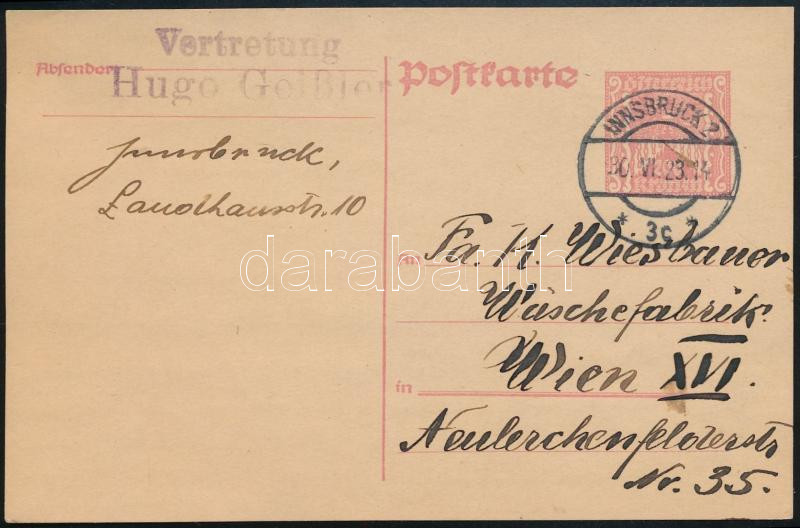 Vertretung
Absender
Hugo Geißler
Innsbruck,
Landhausstr. 10
Postkarte
INNSBRUCK 2
30. VI. 23. 14
* 3c *
An
Fa. H. Wiesbauer
Wäschefabrik
in
Wien XVI.
Neulerchenfelderstr
Nr. 35.
darabanth